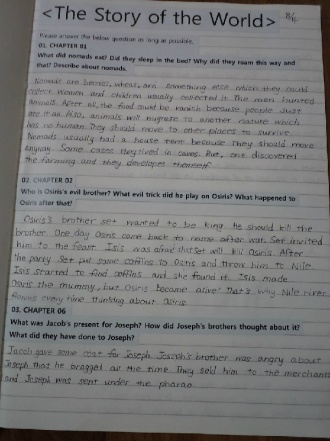 <The Story of the World> 84
Please answer the below question as long as possible.
01. CHAPTER 01
What did nomads eat? Did they sleep in the bed? Why did they roam this way and
that? Describe about nomads.
Nomads ate berries, wheat, are something else which they could
collect. Women and children usually collected it. The men hunted
animals. After all, the food could be vanish because people just
ate it all. Also, animals will migrate to another nature which
has no human. They should move to other places to survive.
Nomads usually had a house tent because They should move
anyway. Some cases they lived in caves. But, one discovered
the farming and they developes
02. CHAPTER 02
Who is Osiris's evil brother? What evil trick did he play on Osiris? What happened to
Osiris after that?
Osiris's brother set wanted to be king. He should kill the
brother. One day Osiris come back to home after war. Set invited
him to the feast. Isis was afraid that Set will kill Osiris. After
the party Set put some coffins to Osiris and throw him to Nile.
Isis started to find coffins and she found it. Isis made
Osiris the mummy, but Osiris became alive! That's why Nile river
flowns every time thinking about Osiris.
03. CHAPTER 06
What was Jacob's present for Joseph? How did Joseph's brothers thought about it?
What did they have done to Joseph?
Jacob gave some coat for Joseph. Joseph's brother was angry about
Joseph that he bragged all the time. They sold him to the merchants
and Joseph was sent under the pharao.